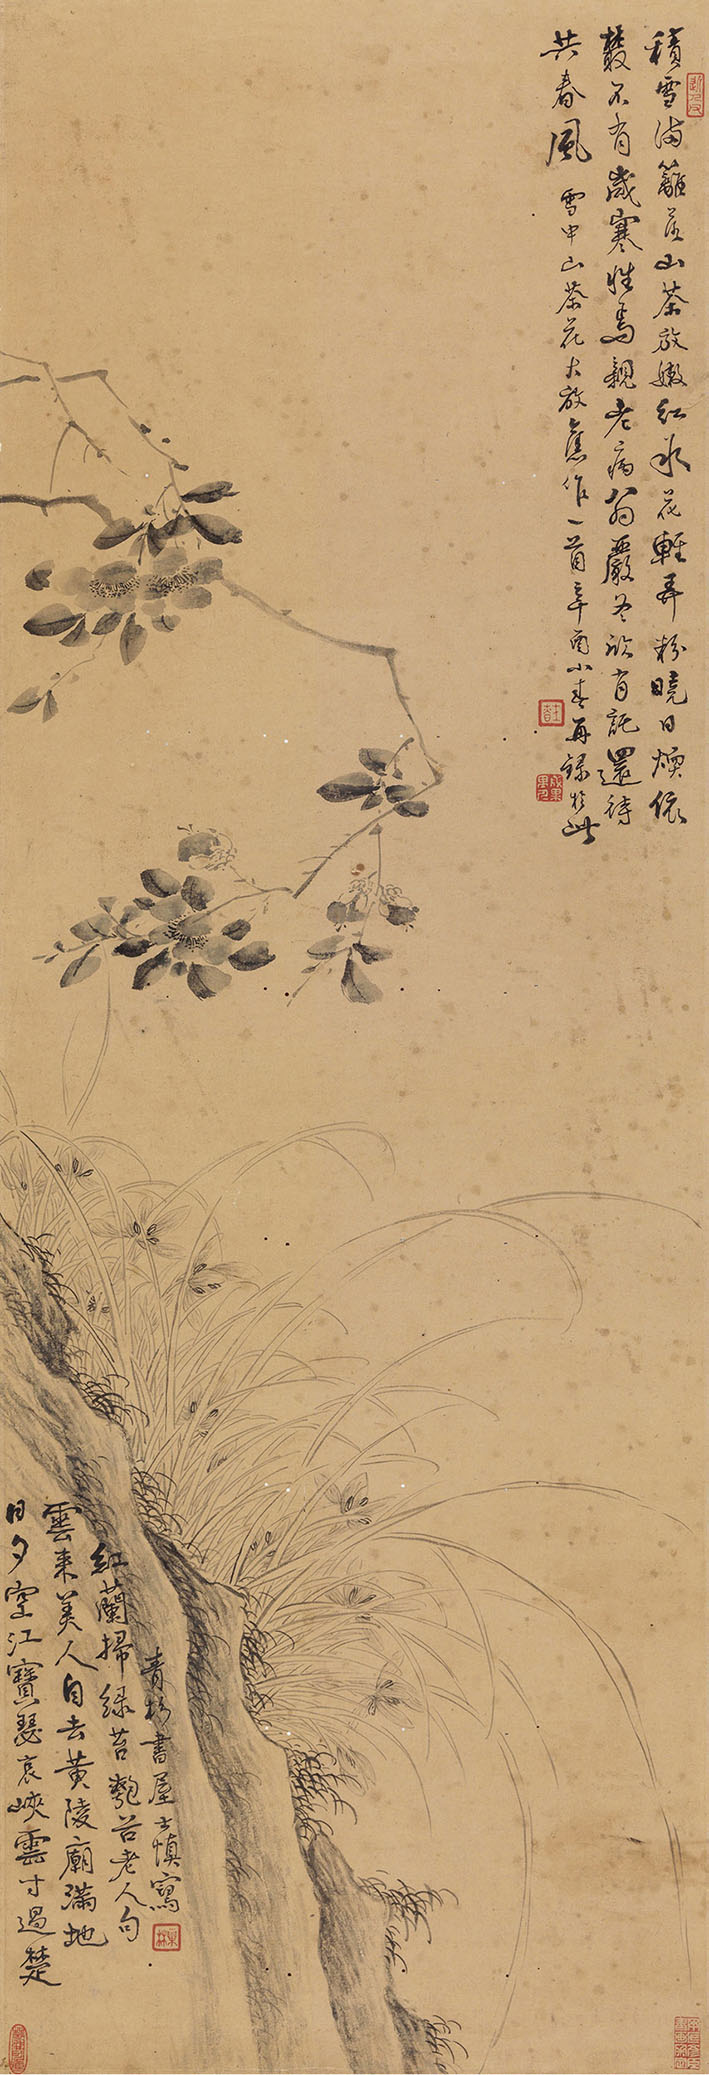 積雪滿籬落山茶放嫩紅冰花輕弄粉曉日煖依
叢不有歲寒性焉親老病翁嚴冬欣有託還待
共春風 雪中山茶花大放舊作一首辛酉小春再錄於此
日夕空江寶瑟哀峽雲才過楚
雲來美人自去黃陵廟滿地
紅蘭掃綠苔 匏老人句
青杉書屋士慎寫